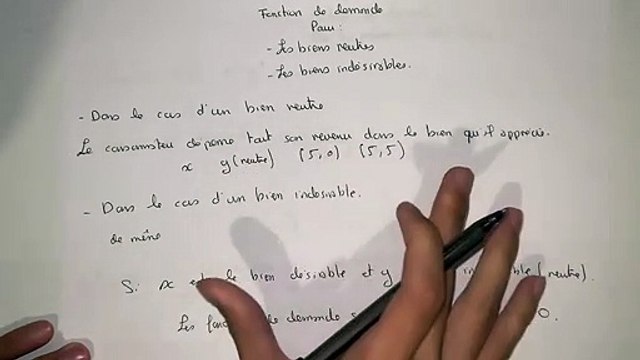 Fonction de demande
Pour:
- Les biens neutres
- Les biens indésirables.
- Dans le cas d'un bien neutre
Le consommateur dépense tout son revenu dans le bien qu'il apprécie.
x y (neutre) (5,0) (5,5)
- Dans le cas d'un bien indésirable.
de même
Si x le bien désirable et y (neutre).
Les de demande 0.